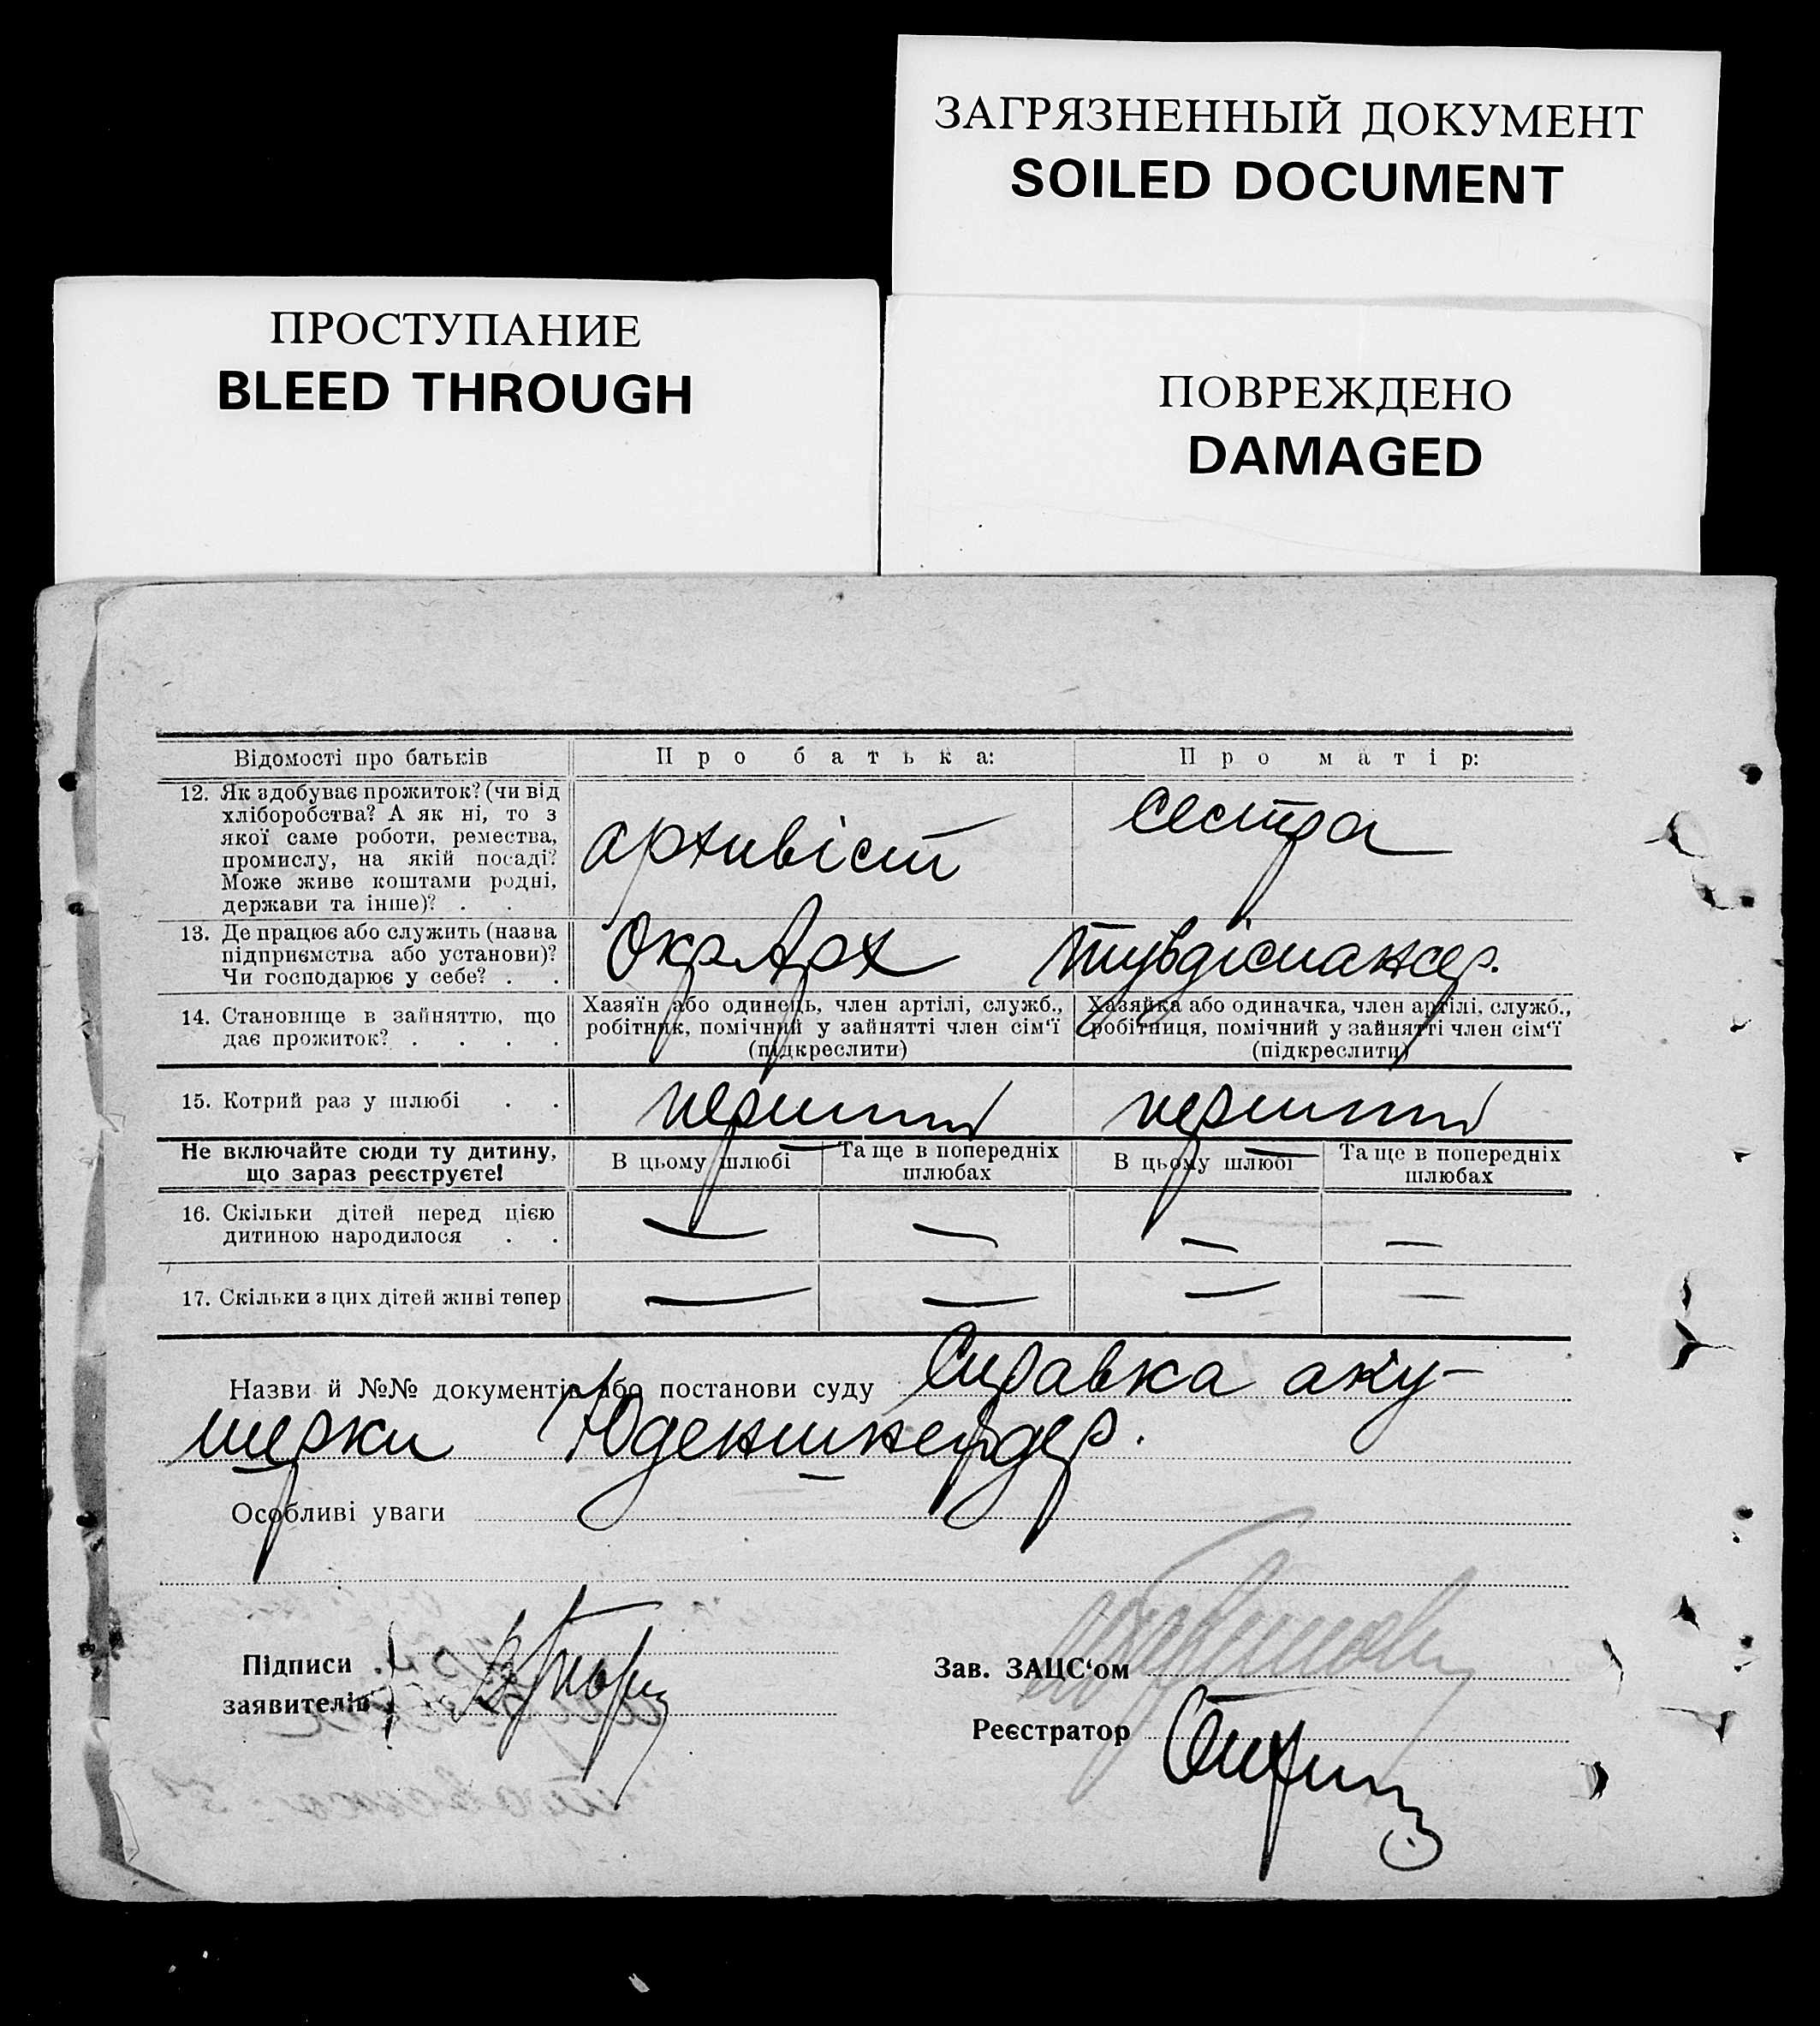 ЗАГРЯЗНЕННЫЙ ДОКУМЕНТ
SOILED DOCUMENT
ПРОСТУПАНИЕ
BLEED THROUGH
ПОВРЕЖДЕНО
DAMAGED
Відомості про батьків
Про батька:
Про матір:
12. Як здобуває прожиток? (чи від
хліборобства? А як ні, то з
якої саме роботи, ремества,
промислу, на якій посаді?
Може живе коштами родні,
держави та інше)? . .
архивіст
сестра
13. Де працює або служить (назва
підприємства або установи)?
Чи господарює у себе? . .
ОкрАрх
тубдіспансер.
14. Становище в зайняттю, що
дає прожиток? . . . .
Хазяїн або одинець, член артілі, служб.,
робітник, помічний у зайнятті член сім'ї
(підкреслити)
Хазяйка або одиначка, член артілі, служб.,
робітниця, помічний у зайнятті член сім'ї
(підкреслити)
15. Котрий раз у шлюбі . .
перший
перший
Не включайте сюди ту дитину,
що зараз реєструєте!
В цьому шлюбі
Та ще в попередніх
шлюбах
В цьому шлюбі
Та ще в попередніх
шлюбах
16. Скільки дітей перед цією
дитиною народилося . .
— — — —
17. Скільки з цих дітей живі тепер
— — — —
Назви й №№ документів або постанови суду Справка аку-
шерки
Особливі уваги
Підписи
заявителів
Зав. ЗАЦС'ом
Реєстратор